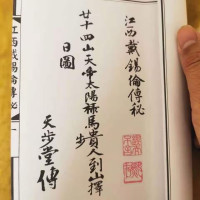 江西戴錫倫傳秘
廿十四山天帝太陽祿馬貴人到山擇
日圖
天步堂傳
步
江西戴錫倫傳秘